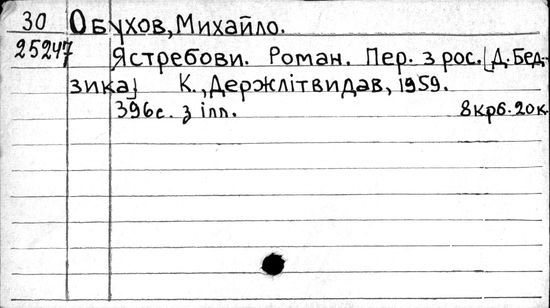 30 Обухов, Михайло.
25247 Ястребови. Роман. Пер. з рос. [Д. Бед-
зика] К., Держлітвидав, 1959.
396с. з ілл. 8крб. 20к